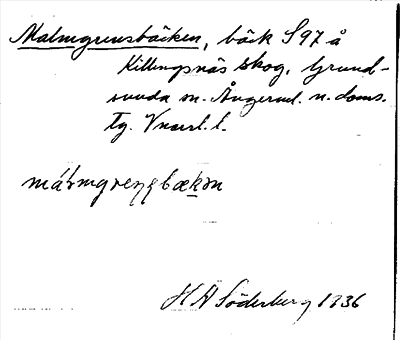 Malmgrensbäcken, bäck S 97 å
Killingsnäs skog, Grund-
sunda sn. Ångerml. n. doms.
tg. Vnorrl. l.
H A Söderberg 1936